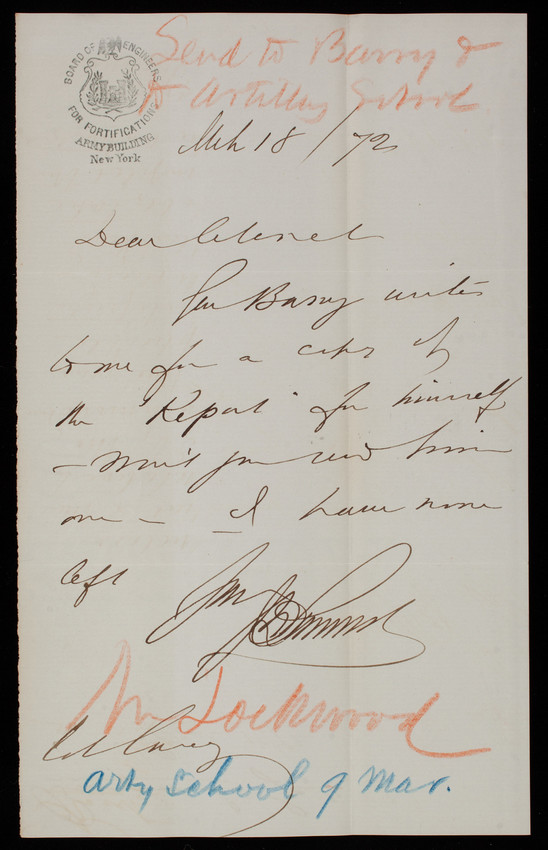 BOARD OF ENGINEERS
FOR FORTIFICATIONS
ARMY BUILDING
New York
Send to Barry &
to Artillery School
Mch 18/72
Dear Colonel
Gen Barry writes
to me for a copy of
the "Report" for himself
- Won't you send him
one - I have none
left
Mr Lockwood
Col Casey
Arty School 9 Mar.